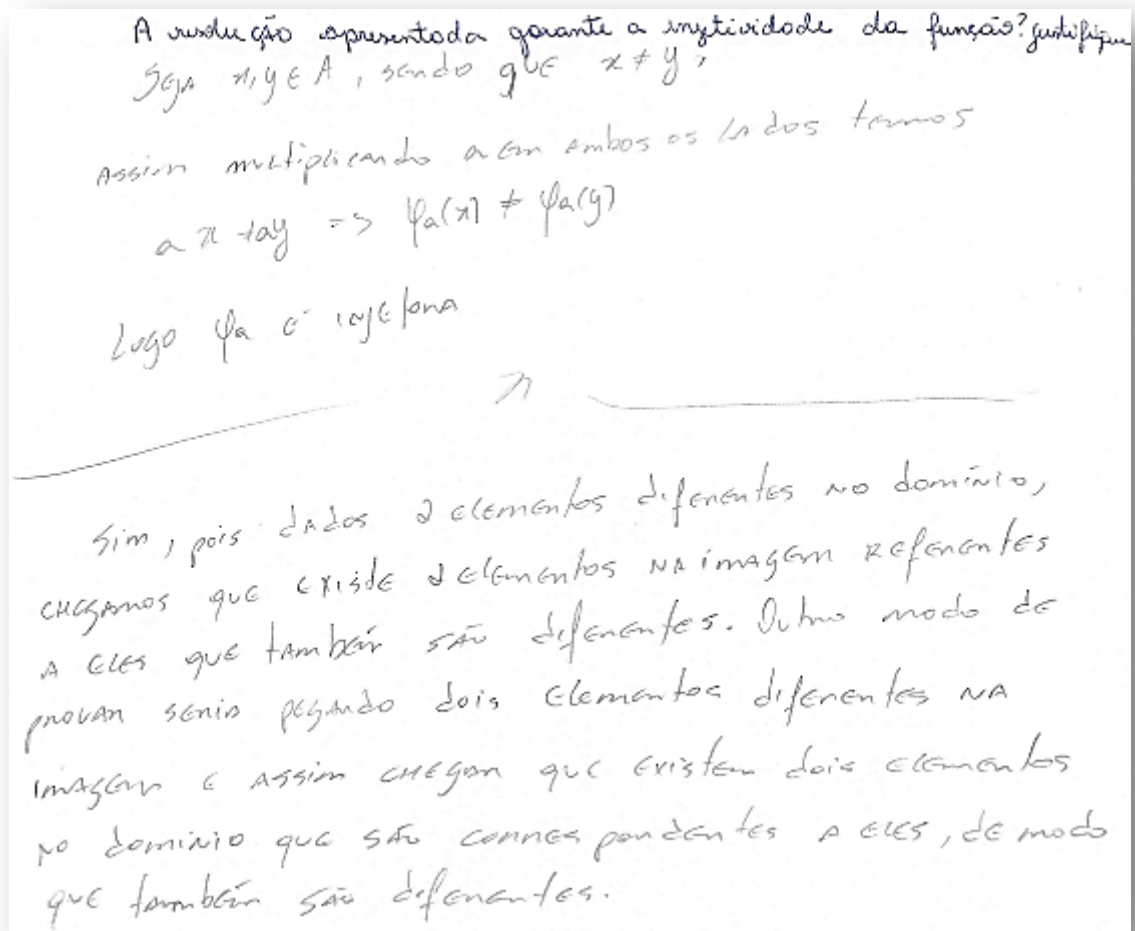 A resolução apresentada garante a injetividade da função? Justifique
Seja x, y ∈ A, sendo que x ≠ y,
Assim multiplicando a em ambos os lados temos
ax ≠ ay => φa(x) ≠ φa(y)
Logo φa é injetora
Sim, pois dados 2 elementos diferentes no domínio,
chegamos que existe 2 elementos na imagem referentes
a eles que também são diferentes. Outro modo de
provar seria pegando dois elementos diferentes na
imagem e assim chegar que existem dois elementos
no domínio que são correspondentes a eles, de modo
que também são diferentes.